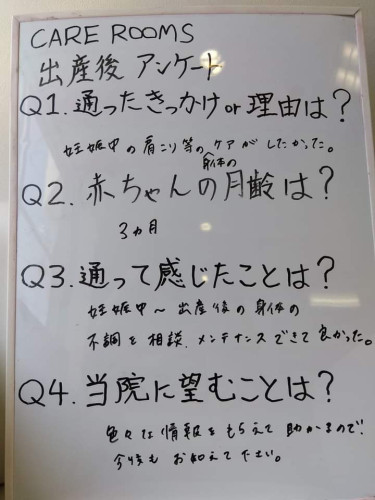 CARE ROOMS
出産後 アンケート
Q1.通ったきっかけor理由は?
妊娠中の肩こり等の身体のケアがしたかった。
Q2.赤ちゃんの月齢は?
3ヵ月
Q3.通って感じたことは?
妊娠中〜出産後の身体の
不調を相談、メンテナンスできて良かった。
Q4.当院に望むことは?
色々な情報をもらえて助かるので!
今後も お知えて下さい。